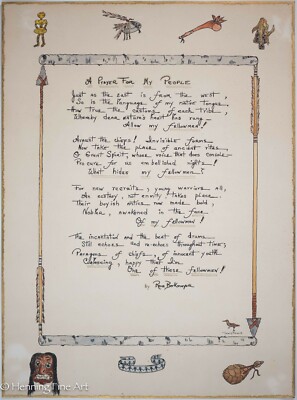 A Prayer For My People
Just as the east is from the west,
So is the language of my native tongue,
How true the customs of each tribe,
Whereby dear nature's heart has rung
Allow my fellowmen!
Around the chiefs! Invisible forms
Now take the place of ancient rites
O Great Spirit, whose voice that does console
Procure for us embolished rights!
What hides my fellowmen?
For new recruits, young warriors all,
An ecstasy, set amity takes place
Their boyish antics now made bold,
Nobler, awakened in the face
Of my fellowmen!
The incantation and the beat of drums
Still echoes and re-echoes throughout time;
Paragons of chiefs, of innocent youth
Cleansing, happy that I'm
One of those fellowmen!
by
© Henning Fine Art